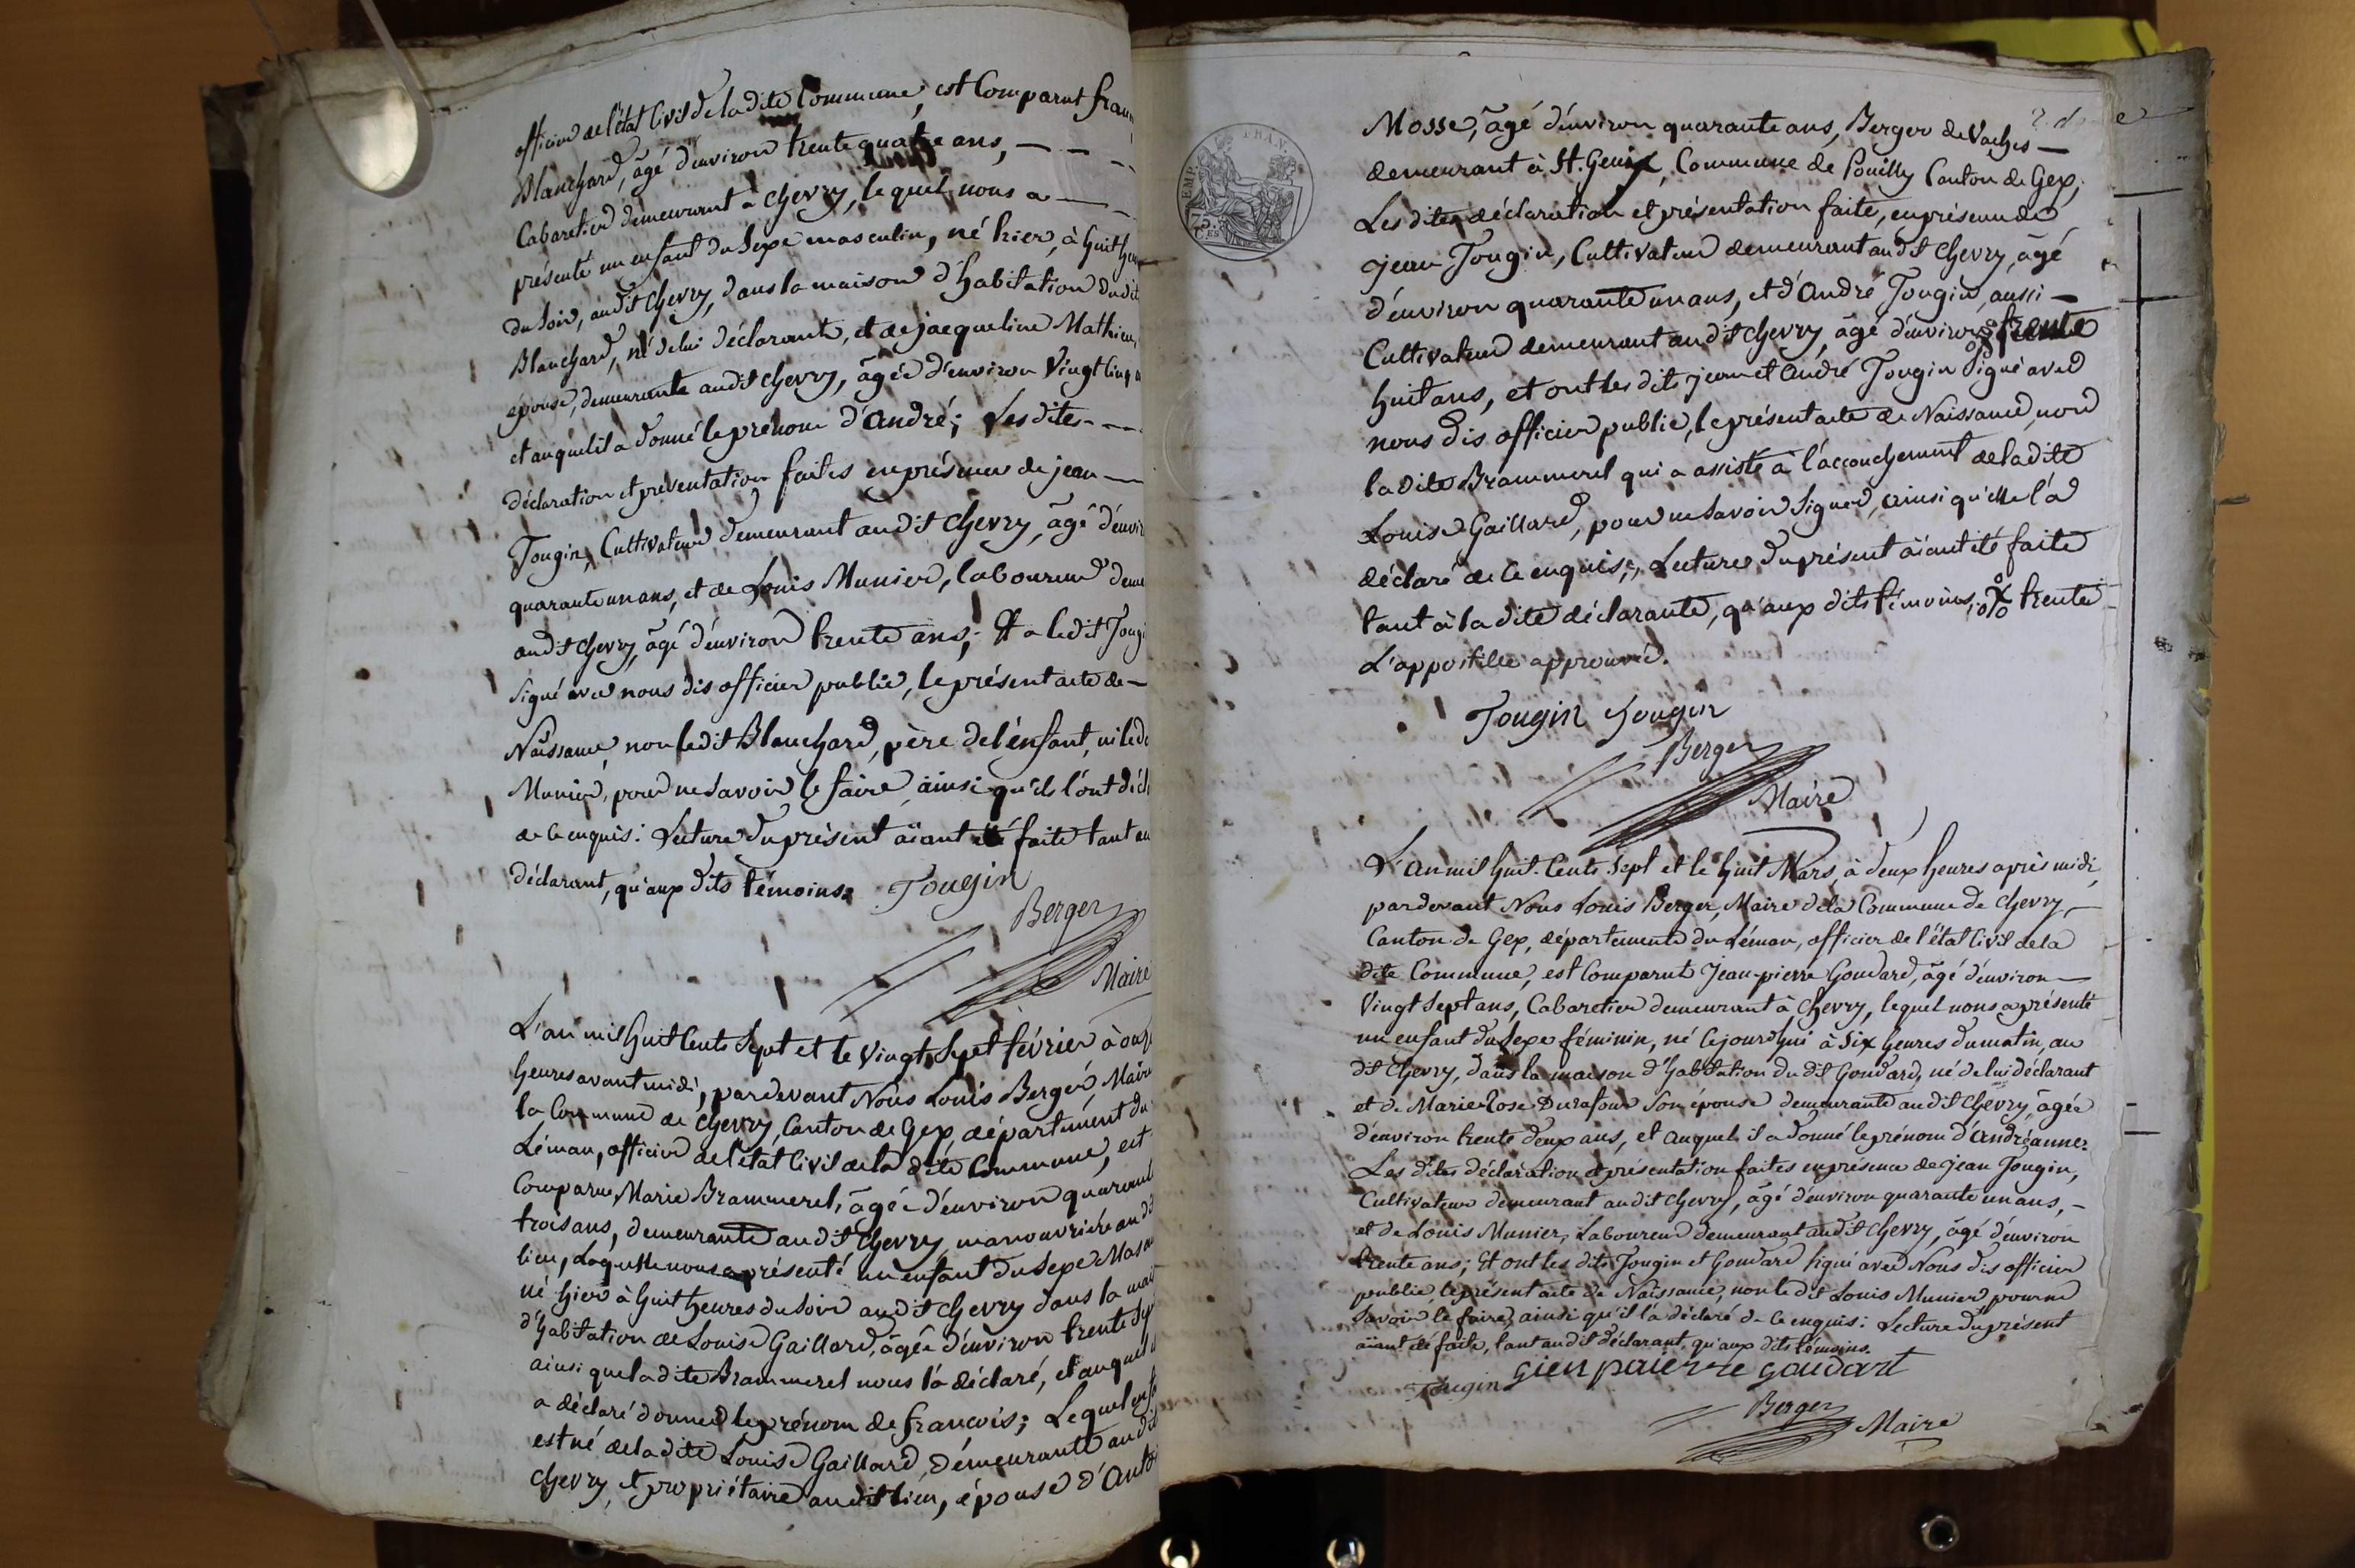 officier de l'état Civil de la dite Commune, est Comparut fran
Blanchard, âgé d'environ trente quatre ans, — — —
Cabaretier demeurant à Chevry, lequel nous a — —
présenté un enfant du Sexe masculin, né hier, à huit heu
du Soir, audit Chevry, dans la maison d'habitation dudit
Blanchard, né de lui déclarant, et de jacqueline Mathieu,
épouse, demeurante audit Chevry, âgée d'environ Vingt Cinq a
et auquel il a donné le prénom d'André; Les dites - - —
déclaration et présentation faites en présence de jean —
Tougin, Cultivateur demeurant audit Chevry, âgé d'envir
quarante un ans, et de Louis Munier, laboureur deme
audit Chevry, âgé d'environ trente ans; Et a ledit Tougi
Signé avec nous dis officier public, le présent acte de —
Naissance, non ledit Blanchard, père de l'énfant, ni led
Munier, pour ne Savoir le faire, ainsi qu'ils l'ont décl
de ce enquis: Lecture du présent aïant été faite tant au
déclarant, qu'aux dits témoins. Tougin
Berger
Maire
L'an mil huit Cents Sept et le Vingt Sept février à onze
heures avant midi, pardevant Nous Louis Berger, Maire
la Commune de Chevry, Canton de Gex, département du
Léman, officier de l'état Civil de la dite Commune, est
Comparue Marie Brammerel, âgée d'environ quarante
trois ans, demeurante audit Chevry, manouvrière audit
lieu, Laquelle nous a présenté un enfant du Sexe Mascu
né hier à huit heures du Soir audit Chevry dans la mais
d'habitation de Louise Gaillard, âgée d'environ trente Sep
ainsi que la dite Brammerel nous l'a déclaré, et auquel
a déclaré donner le prénom de francois; Lequel enf
est né de la dite Louise Gaillard, demeurante audit
Chevry, et propriétaire audit lieu, épouse d'Anto
Mosse, âgé d'environ quarante ans, Berger de Vaches —
demeurant à St. Genix, Commune de Pouilly Canton de Gex;
Les dites déclaration et présentation faite, en présence de
jean Tougin, Cultivateur demeurant audit Chevry, âgé
d'environ quarante un ans, et d'André Tougin, aussi —
Cultivateur demeurant audit Chevry, âgé d'environ trente
huit ans, et ont les dits jean et André Tougin Signé avec
nous dis officier public, le présent acte de Naissance, non
la dite Brammerel qui a assisté à l'accouchement de la dite
Louise Gaillard, pour ne Savoir Signer, ainsi qu'elle l'a
déclaré de ce enquise, Lecture du présent aïant été faite
tant à la dite déclarante, qu'aux dits témoins; trente
L'appostille approuvée.
Tougin Tougin
Berger
Maire
L'an mil huit-Cents Sept et le huit Mars, à deux heures après midi,
pardevant Nous Louis Berger, Maire de la Commune de Chevry, —
Canton de Gex, département du Léman, officier de l'état Civil de la
dite Commune, est Comparut Jean-pierre Goudard, âgé d'environ —
Vingt Sept ans, Cabaretier demeurant à Chevry, lequel nous a présenté
un enfant du Sexe féminin, né cejourd'hui à Six heures du matin, au
dit Chevry, dans la maison d'habitation du dit Goudard, né de lui déclarant
et de Marie Rose Durafour Son épouse demeurante audit Chevry, âgée
d'environ trente deux ans, et auquel il a donné le prénom d'Andréanne.
Les dites déclaration et présentation faites en présence de jean Tougin,
Cultivateur demeurant audit Chevry, âgé d'environ quarante un ans, -
et de Louis Munier, Laboureur demeurant audit Chevry, âgé d'environ
trente ans; Et ont les dits Tougin et Goudard Signé avec Nous dis officier
public le présent acte de Naissance, non le dit Louis Munier pour ne
Savoir le faire, ainsi qu'il l'a déclaré de ce enquis: Lecture du présent
aïant été faite, tant audit déclarant, qu'aux dits témoins.
Tougin gien paierre goudart
Berger
Maire